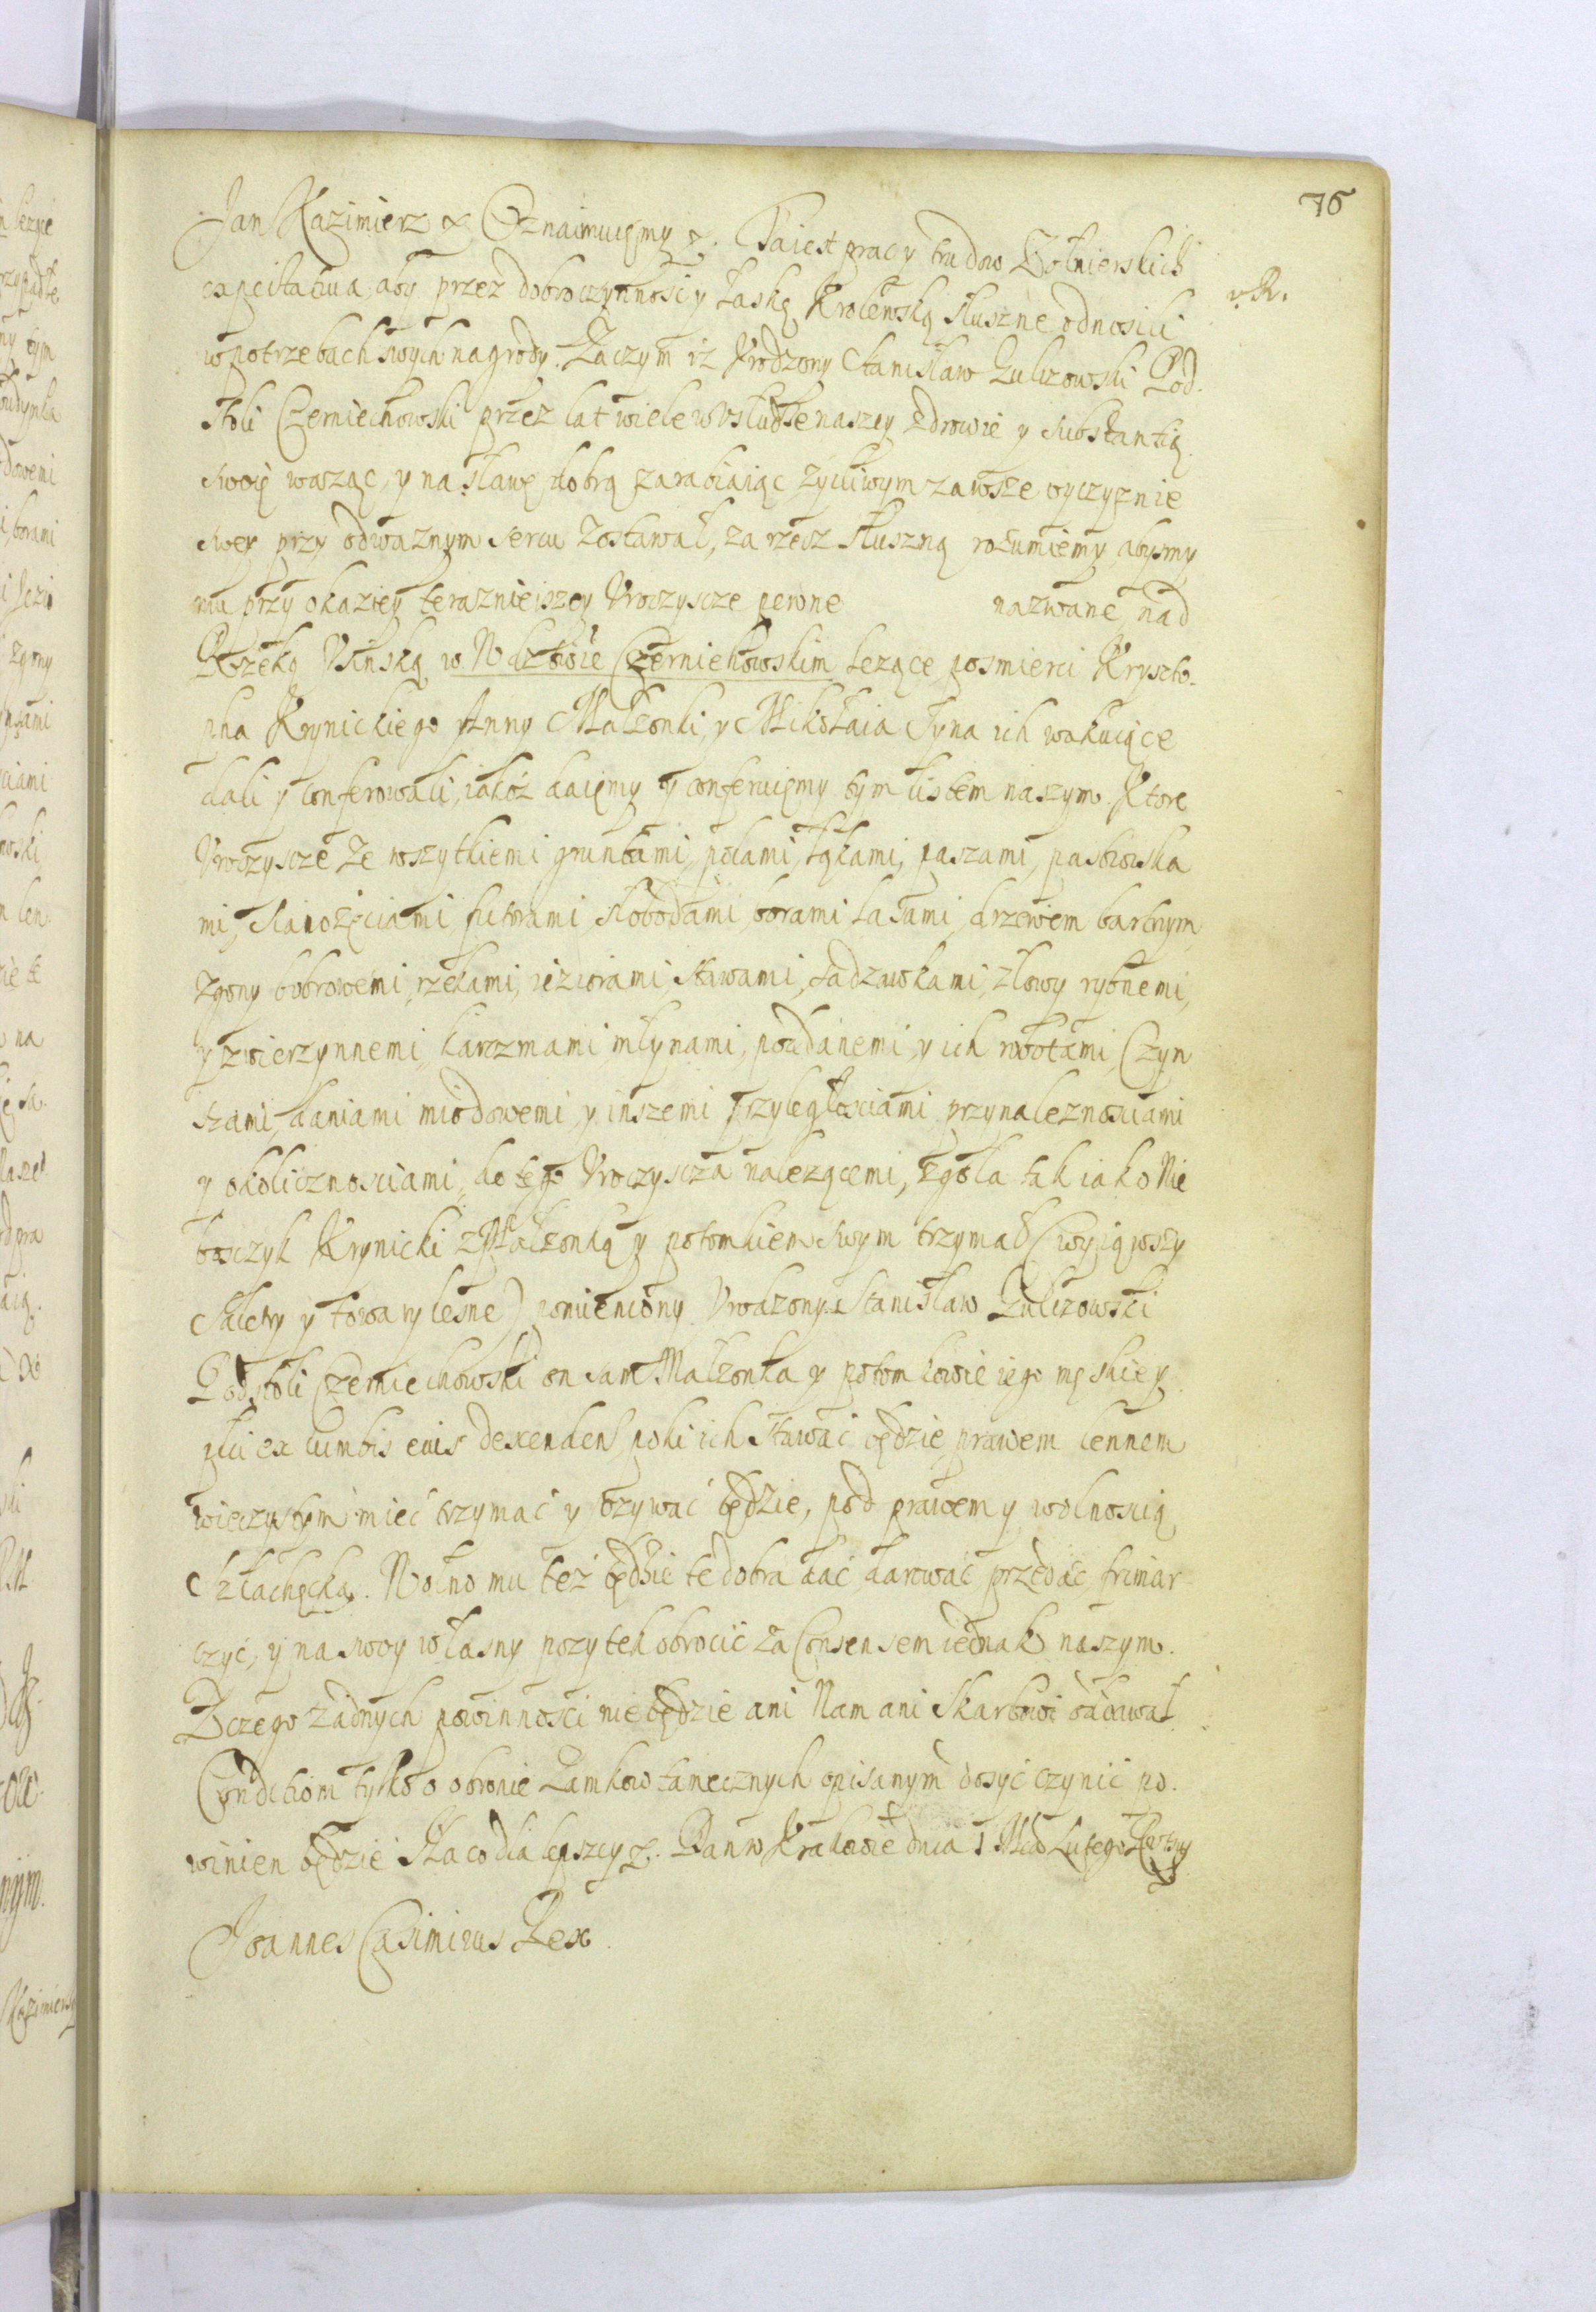 76
Jan Kazimierz &. Oznaimuięmy &. Ta iest pracy trudow Żołnierskich
v. R.
expectatiua, aby przez dobroczynność y Łaskę Krolewską słusznę odnosili
w potrzebach swych nagrody. Zaczym iż Vrodzony Stanisław Zulizowski Pod.
stoli Czerniechowski przez lat wiele w Vsłudze naszey zdrowie y substantią
swoię warząc, y na sławę dobrą zarabiaiąc życzliwym zawsze oyczyznie
swey przy odważnym sercu zostawał, za rzecz słuszną rozumiemy, abysmy
mu przy okaziey terazniejszey Vroczyscze pewne nazwane, nad
Rzeką Vsinską w Wdztwie Czerniehowskim leżące po smierci Kryszto-
pha Krynickiego Anny Małżonki, y Mikołaia Syna ich wakuiące
dali y conferowali, iakoż daięmy y conferuięmy tym listem naszym. Ktore
Vroczyscze ze wszytkiemi gruntami, polami, łąkami, paszami, pastwiska
mi, Sianożęciami, futorami, słobodami borami lasami, drzewem bartnym,
zgony bobrowemi, rzekami, ieziorami, stawami, sadzawkami, złowy rybnemi,
y zwierzynnemi, karczmami, młynami, poddanemi, y ich robotami, Czyn
szami, daniami miodowemi, y inszemi przyległosciami przynależnosciami
y okolicznosciami, do tego Vroczyscza należącemi, zgoła tak iako Nie
bosczyk Krynicki z Małżonką y potomkiem swym trzymał (wyiąwszy
Saletry y towary lesne) pomieniony Vrodzony Stanisław Zulizowski
Podstoli Czerniechowski on sam Małżonka y potomkowie iego męskiey
płci ex lumbis eius descenden poki ich stawać będzie prawem lennem
wieczystym mieć trzymać y vżywać będzie, pod prawem y wolnoscią
Szlachęcką. Wolno mu też będzie te dobra dać darować przedać frimar-
czyć, y na swoy własny pożytek obrocić za Consensem iednak naszym.
Z czego żadnych powinnosci nie będzie ani Nam ani Skarbowi oddawał
Condctiom tylko o obronie Zamkow tamecznych opisanym dosyć czynić po.
winien będzie Na co dla lepszey &. Dan w Krakowie dnia 1 Mca Lutego
Joannes Casimirus Rex.